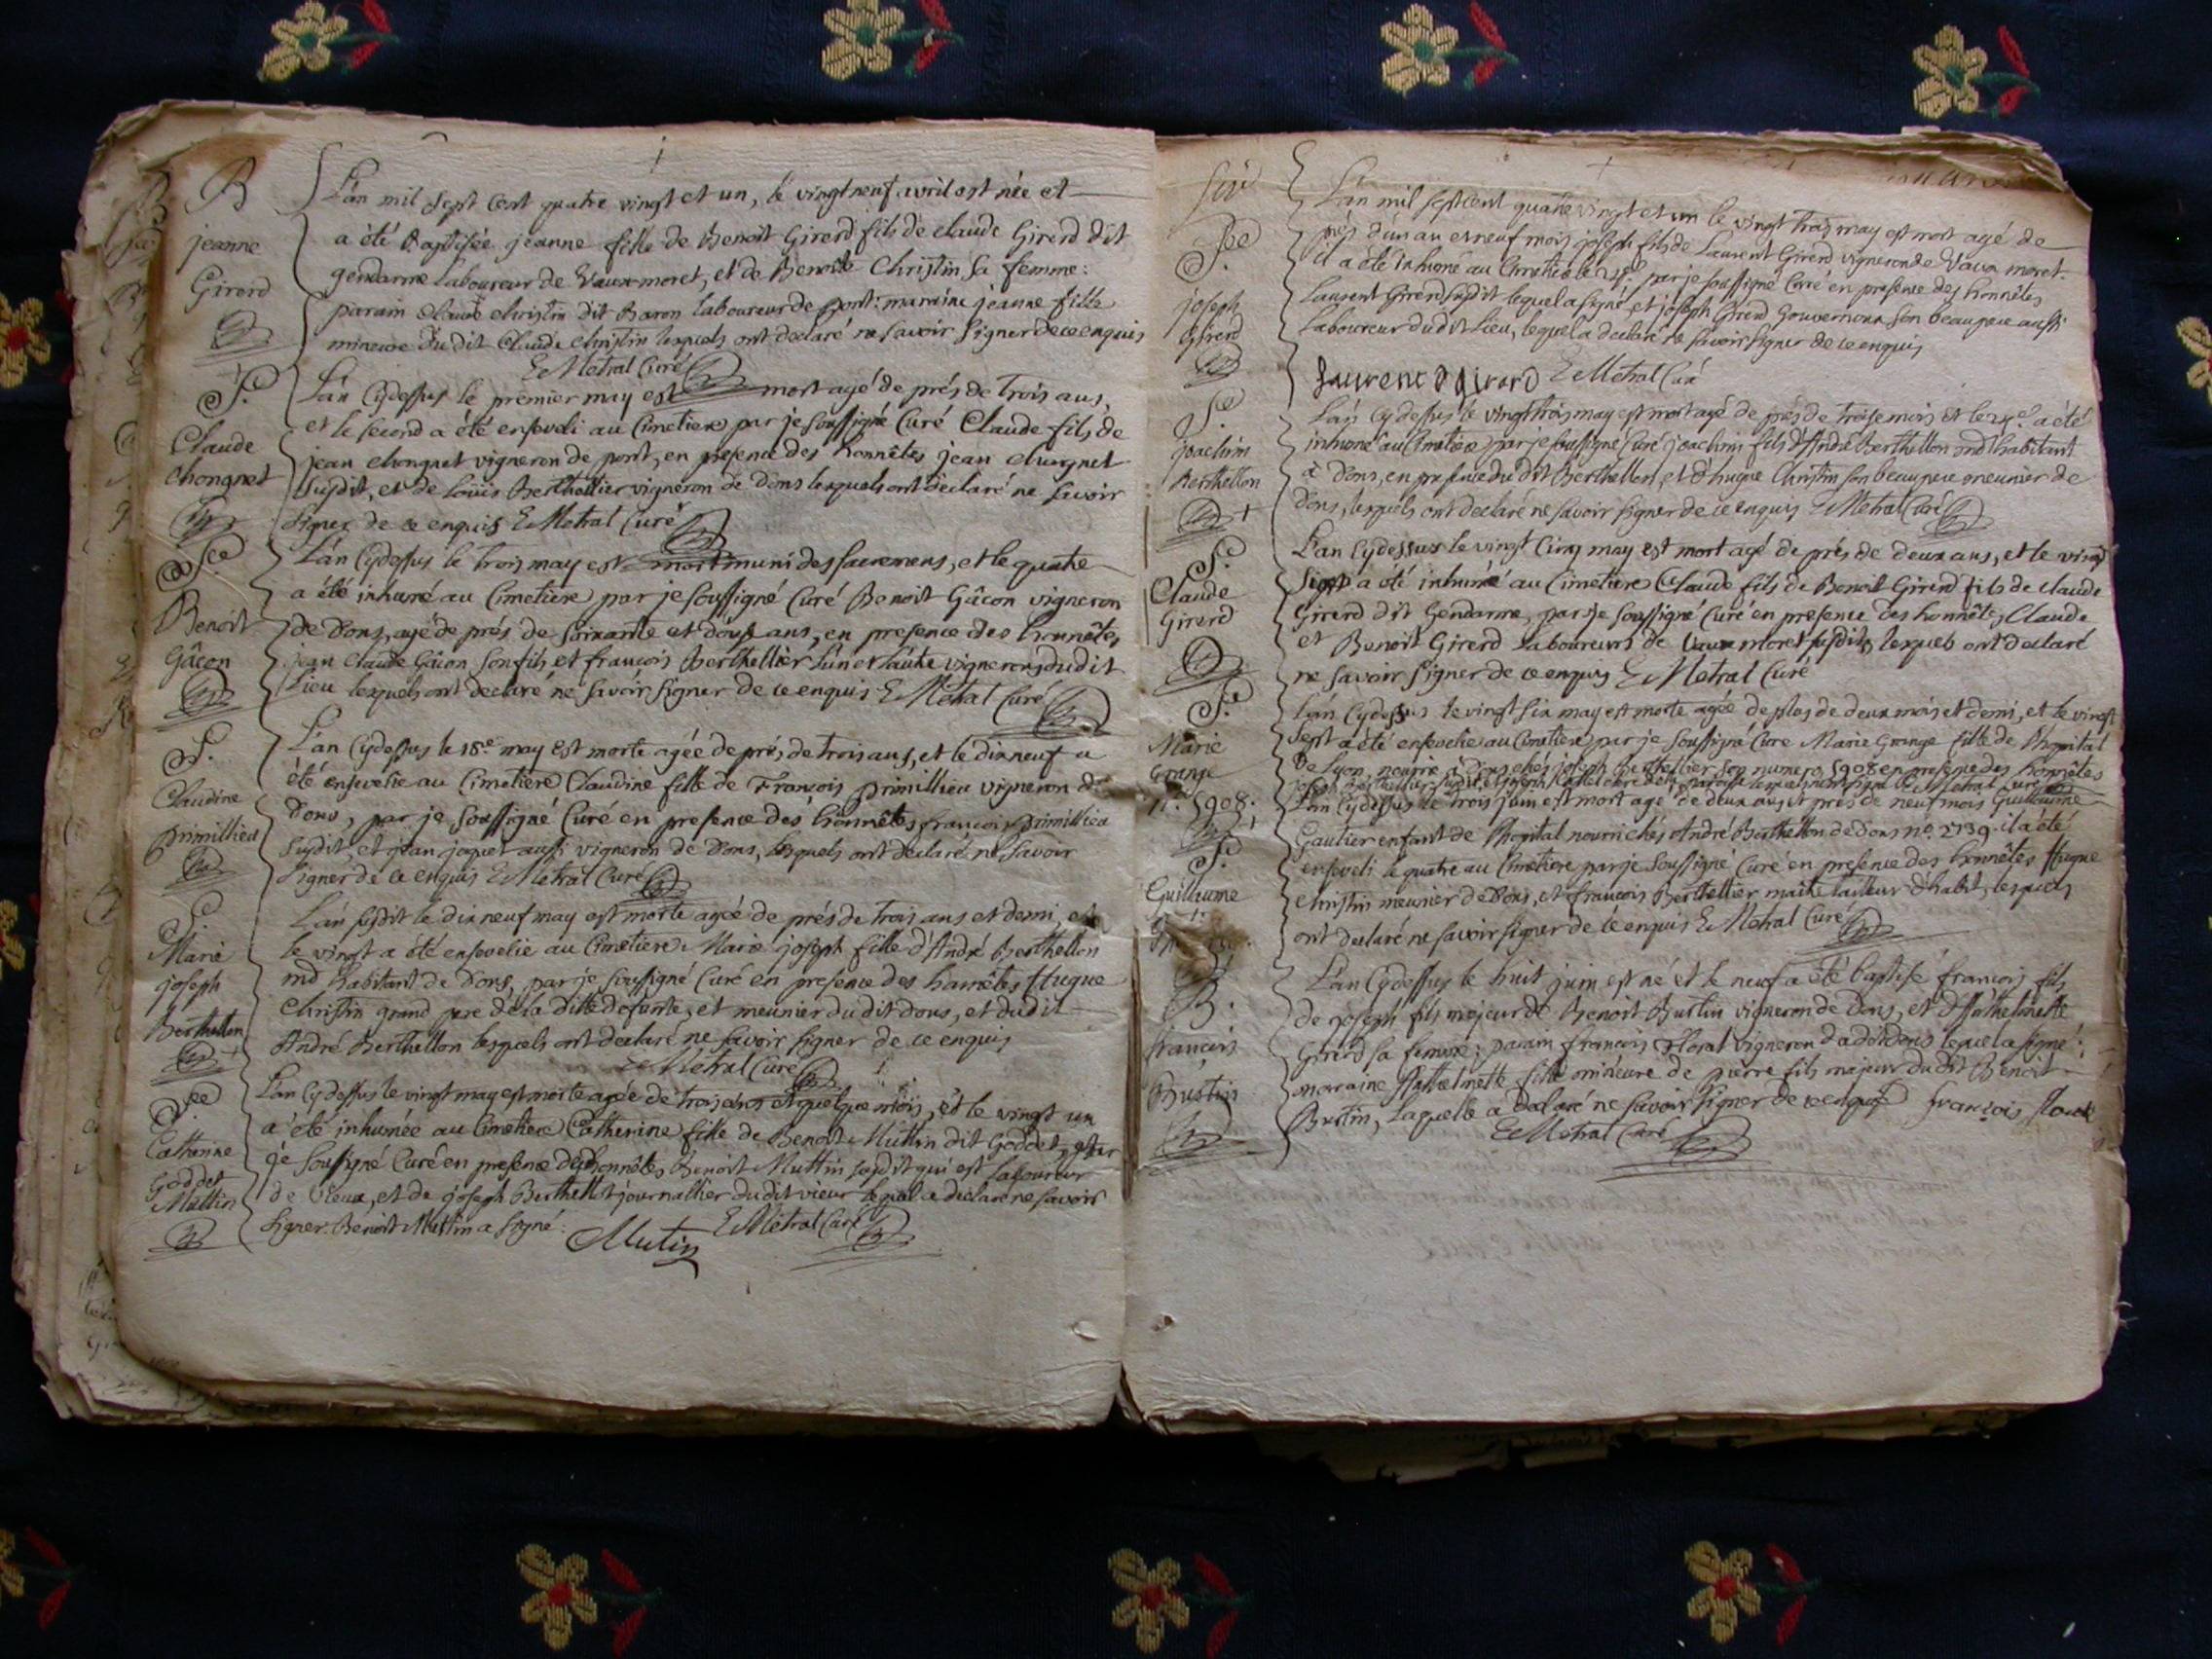 B
jeanne
Girerd
L'an mil sept cent quatre vingt et un, le vingt neuf avril est née et
a été Baptisée jeanne fille de Benoit Girerd fils de claude Girerd dit
gendarme Laboureur de Vaux moret, et de Benoite Christin sa femme:
parain Claude christin dit Baron laboureur de pont: maraine jeanne fille
mineure du dit Claude christin lesquels ont declaré ne savoir signer de ce enquis
E Metral Curé
S.e
Claude
Chongnet
L'an Cydessus le premier may est mort agé de prés de trois ans,
et le second a été enseveli au Cimetiere par je soussigné Curé Claude fils de
jean chongnet vigneron de pont, en presence des honnêtes jean chongnet
susdit, et de Louis Berthellier vigneron de Dons lesquels ont declaré ne savoir
signer de ce enquis E Metral Curé
S.re
Benoit
Gâcon
L'an Cydessus le trois may est mort muni des sacremens, et le quatre
a été inhumé au Cimetiere par je soussigné Curé Benoit Gâcon vigneron
de Dons, agé de prés de soixante et douse ans, en presence des honnêtes
jean Claude Gâcon son fils et francois Berthellier l'un et l'autre vignerons du dit
Lieu lesquels ont declaré ne savoir signer de ce enquis E Metral Curé
S.
Claudine
primillieu
L'an Cydessus le 18e may est morte agée de prés de trois ans, et le dix neuf a
été ensevelie au Cimetiere Claudine fille de François primillieu vigneron de
Dons, par je soussigné Curé en presence des honnêtes francois primillieu
susdit, et jean jaquet aussi vigneron de Dons, lesquels ont declaré ne savoir
signer de ce enquis E Metral Curé
S.
Marie
joseph
Berthellon
L'an susdit le dix neuf may est morte agée de prés de trois ans et demi, et
le vingt a été ensevelie au Cimetiere Marie joseph fille d'André Berthellon
md habitant de Dons, par je soussigné Curé en presence des honnêtes Hugue
Christin grand pere de la ditte defunte, et meunier du dit Dons, et du dit
André Berthellon lesquels ont declaré ne savoir signer de ce enquis
E Metral Curé
S.re
Catherine
Goddet
Muttin
L'an cydessus le vingt may est morte agée de trois ans et quelque mois, et le vingt un
a été inhumée au Cimetiere Catherine fille de Benoit Muttin dit Goddet, par
je soussigné Curé en presence des honnêtes Benoit Muttin susdit qui est laboureur
de vieux, et de joseph Berthelet journallier du dit vieux lequel a declaré ne savoir
signer. Benoit Muttin a signé: Mutin E Metral Curé
S.re
joseph
Girerd
L'an mil sept cent quatre vingt et un le vingt trois may est mort agé de
prés d'un an et neuf mois joseph fils de Laurent Girerd vigneron de Vaux moret.
il a été inhumé au Cimetiere le par je soussigné Curé en presence des honnêtes
Laurent Girerd susdit lequel a signé, et joseph Girerd Gouverneur son beau pere aussi
Laboureur du dit Lieu, lequel a declaré ne savoir signer de ce enquis
Laurent girard E Metral Curé
S.re
joachim
Berthellon
L'an Cydessus le vingt trois may est mort agé de prés de treise mois et le 24e a été
inhumé au Cimetiere par je soussigné Curé joachim fils d'André Berthellon md habitant
à Dons, en presence du dit Berthellon, et d'hugue Christin son beau pere meunier de
Dons, lesquels ont declaré ne savoir signer de ce enquis E Metral Curé
S.e
Claude
Girerd
L'an Cydessus le vingt Cinq may est mort agé de prés de deux ans, et le vingt
sept a été inhumé au Cimetiere Claude fils de Benoit Girerd fils de claude
Girerd dit Gendarme, par je soussigné Curé en presence des honnêtes Claude
et Benoit Girerd Laboureurs de Vaux moret susdits lesquels ont declaré
ne savoir signer de ce enquis E Metral Curé
S.e
Marie
Grange
n.o 5908.
L'an Cydessus le vingt six may est morte agée de plus de deux mois et demi, et le vingt
sept a été ensevelie au Cimetiere par je soussigné Curé Marie Grange fille de l'hopital
de Lyon, nourrie à Dons chés joseph Berthellier son numero 5908 en presence des honnêtes
joseph Berthellier susdit, et joseph E Metral Curé
S.e
Guillaume
L'an Cydessus le trois juin est mort agé de deux ans et prés de neuf mois Guillaume
Gautier enfant de l'hopital nourri chés André Berthellon de Dons no. 2739. il a été
enseveli le quatre au Cimetiere par je soussigné Curé en presence des honnêtes Hugue
christin meunier de Dons, et francois Berthellier maitre tailleur d'habit, lesquels
ont declaré ne savoir signer de ce enquis E Metral Curé
B.
francois
Bustin
L'an Cydessus le huit juin est né et le neuf a été baptisé francois fils
de joseph fils majeur de Benoit Bustin vigneron de Dons, et d'Anthelmette
Girerd sa femme: parain francois Floral vigneron du dit Dons lequel a signé:
maraine Anthelmette fille mineure de pierre fils majeur du dit Benoit
Bustin, laquelle a declaré ne savoir signer de ce enquis françois
E Metral Curé